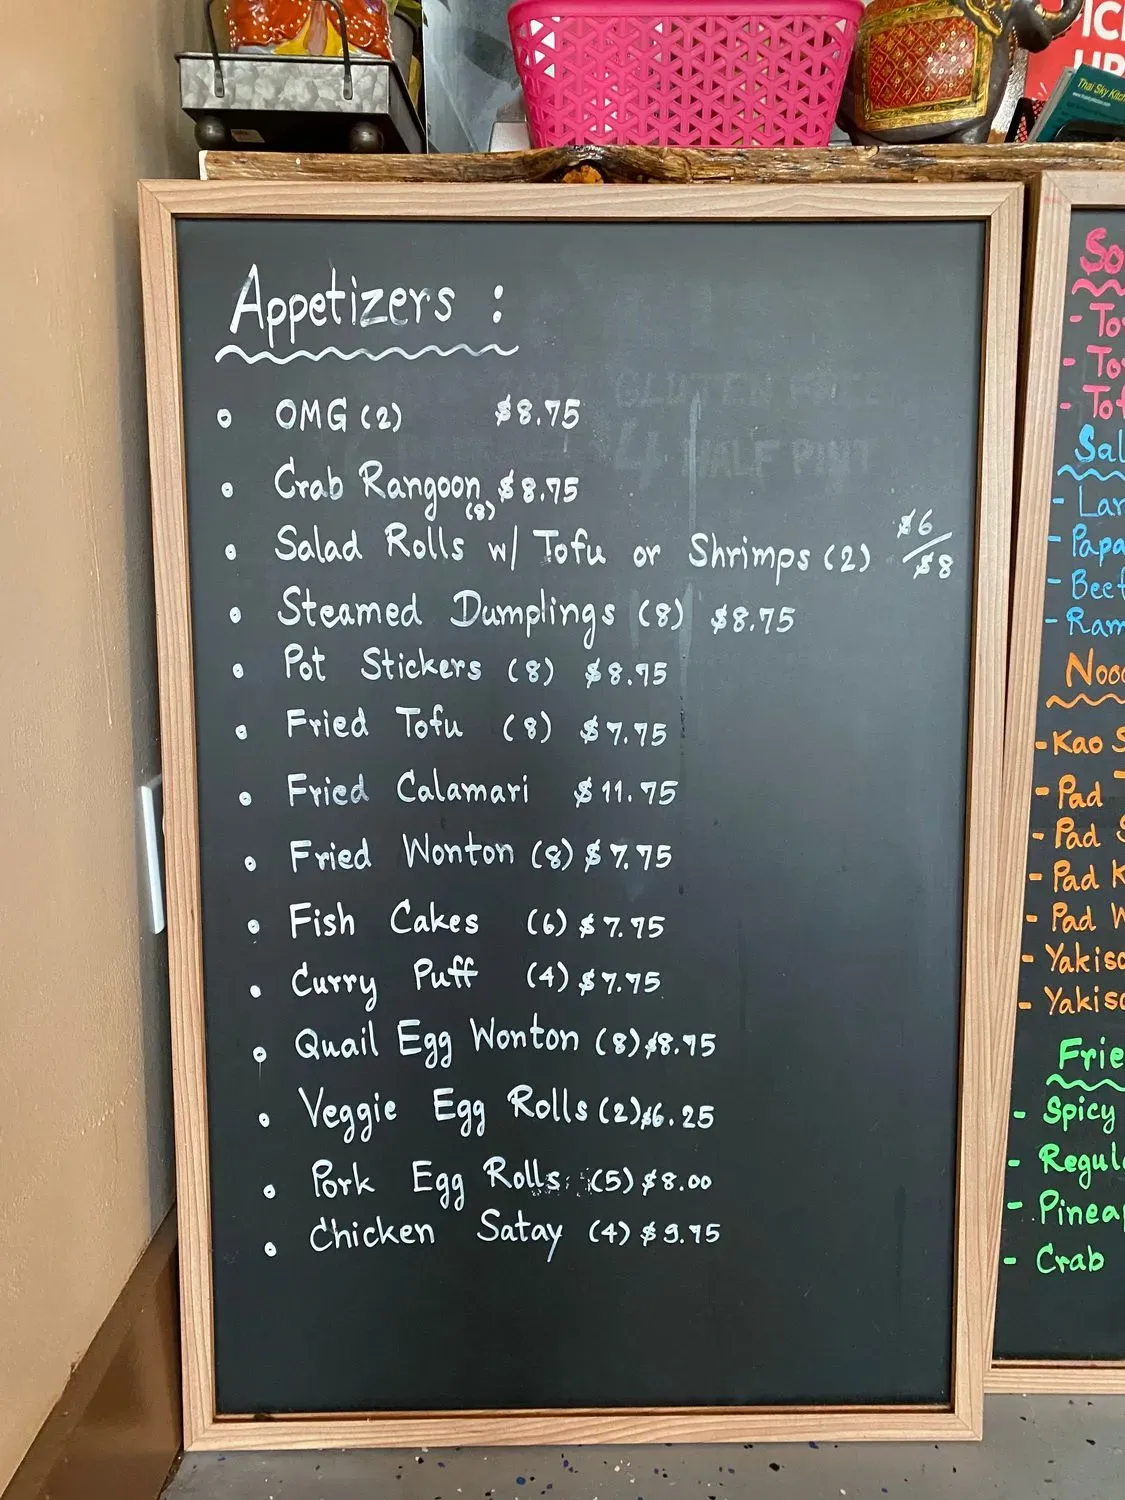 ICK
UP
Thai Sky Kitch
Appetizers :
GLUTEN FREE
HALF PINT
OMG (2) $8.75
Crab Rangoon $8.75
(8)
Salad Rolls w/ Tofu or Shrimps (2) $6/$8
Steamed Dumplings (8) $8.75
Pot Stickers (8) $8.75
Fried Tofu (8) $7.75
Fried Calamari $11.75
Fried Wonton (8) $7.75
Fish Cakes (6) $7.75
Curry Puff (4) $7.75
Quail Egg Wonton (8) $8.75
Veggie Egg Rolls (2) $6.25
Pork Egg Rolls (5) $8.00
Chicken Satay (4) $9.75
So
- To
- To
- Tof
Sal
- Lar
- Papa
- Beef
- Ram
Nood
- Kao S
- Pad T
- Pad S
- Pad K
- Pad W
- Yakiso
- Yakiso
Frie
- Spicy
- Regul
- Pineap
- Crab